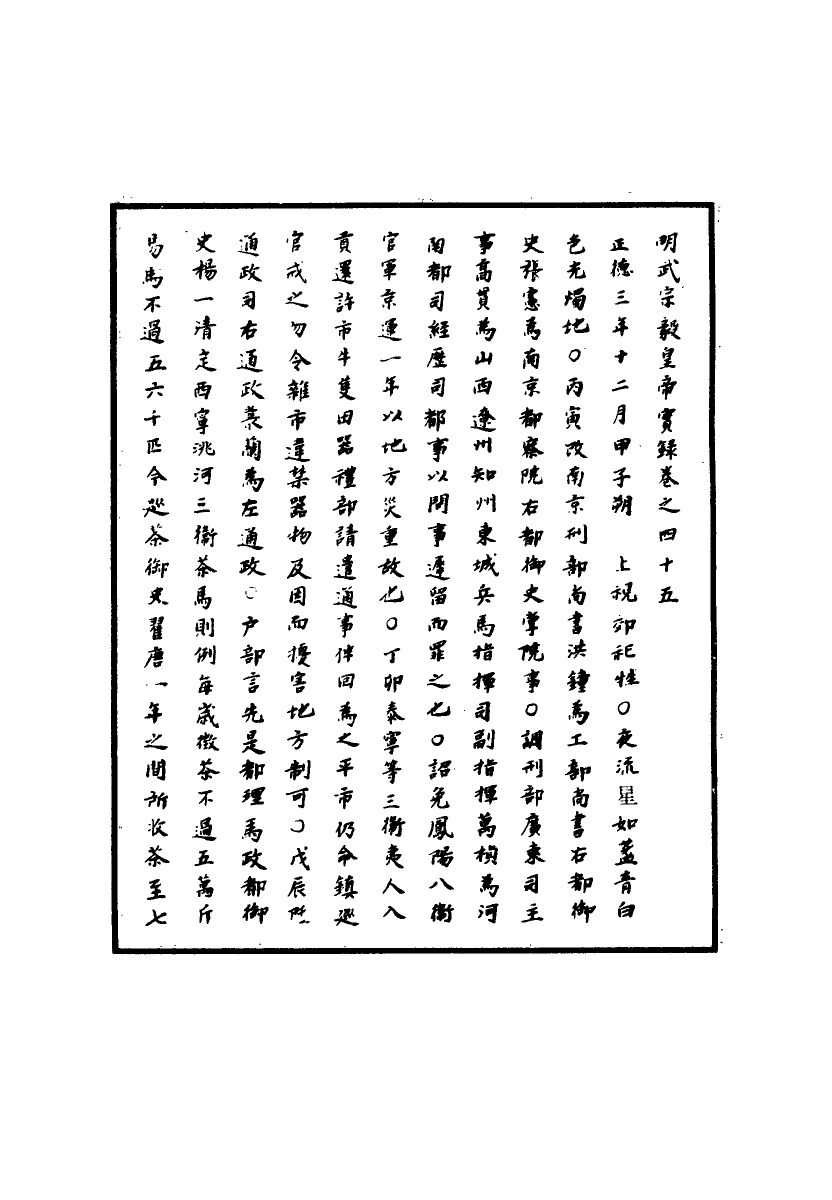 明武宗毅皇帝實録卷之四十五
正德三年十二月甲子朔　上視郊祀牲○夜流星如盞青白
色光燭地○丙寅改南京刑部尚書洪鐘為工部尚書右都御
史張憲為南京都察院右都御史掌院事○調刑部廣東司主
事高貫為山西遼州知州東城兵馬指揮司副指揮萬楨為河
間都司經歷司都事以問事遲留而罪之也○詔免鳳陽八衛
官軍京運一年以地方災重故也○丁卯泰寧等三衛夷人入
貢還許市牛隻田器禮部請遣通事伴回為之平市仍令鎮廵
官戒之勿令雜市違禁器物及因而擾害地方制可○戊辰陞
通政司右通政叢蘭為左通政○户部言先是都理馬政都御
史楊一清定西寧洮河三衛茶馬則例每歲徵茶不過五萬斤
易馬不過五六千匹今廵茶御史翟唐一年之間所收茶至七